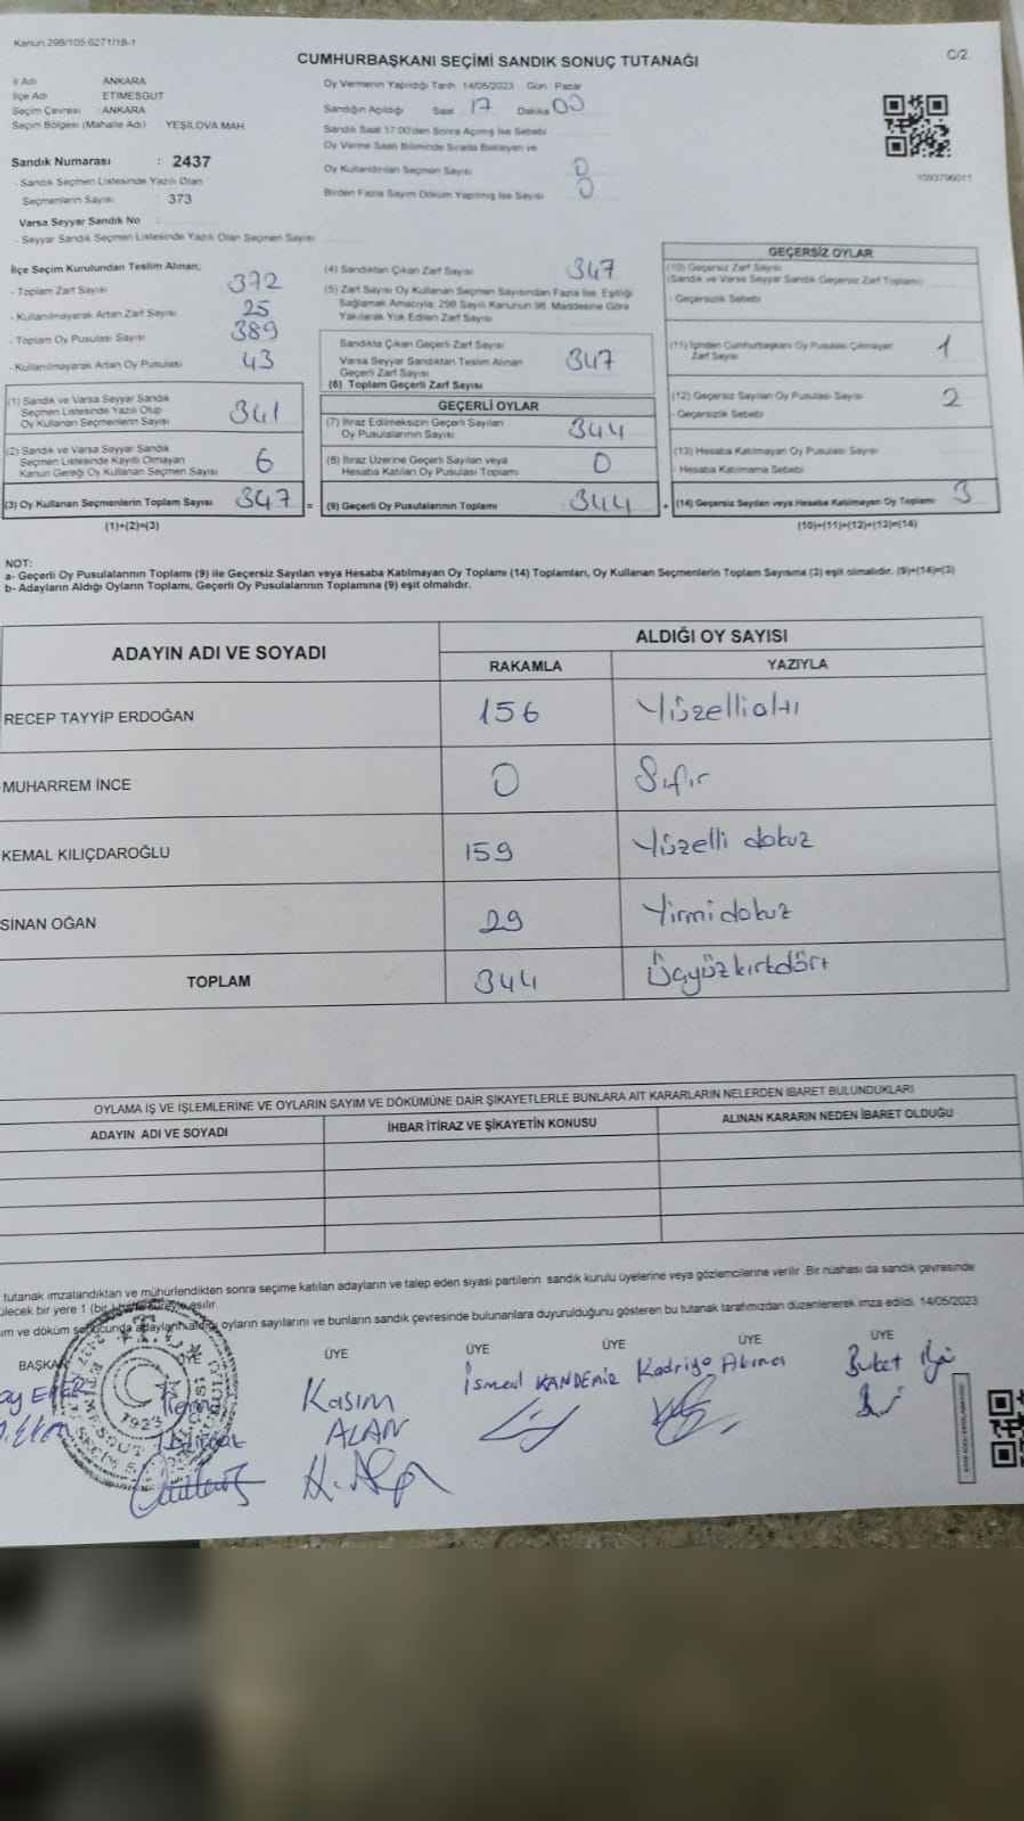 Kanun 299/105 6271/18-1
C/2
CUMHURBAŞKANI SEÇİMİ SANDIK SONUÇ TUTANAĞI
İl Adı ANKARA
İlçe Adı ETİMESGUT
Seçim Çevresi ANKARA
Seçim Bölgesi (Mahalle Adı) YEŞİLOVA MAH.
Sandık Numarası : 2437
- Sandık Seçmen Listesinde Yazılı Olan
Seçmenlerin Sayısı 373
Varsa Seyyar Sandık No
- Seyyar Sandık Seçmen Listesinde Yazılı Olan Seçmen Sayısı
Oy Vermenin Yapıldığı Tarih 14/05/2023 Gün Pazar
Sandığın Açıldığı Saat 17 Dakika 00
Sandık Saat 17:00'den Sonra Açılmış İse Sebebi
Oy Verme Saati Bitiminde Sırada Bekleyen ve
Oy Kullandırılan Seçmen Sayısı 0
Birden Fazla Sayım Döküm Yapılmış İse Sayısı 0
İlçe Seçim Kurulundan Teslim Alınan;
- Toplam Zarf Sayısı 372
- Kullanılmayarak Artan Zarf Sayısı 25
- Toplam Oy Pusulası Sayısı 389
- Kullanılmayarak Artan Oy Pusulası 43
(1) Sandık ve Varsa Seyyar Sandık
Seçmen Listesinde Yazılı Olup
Oy Kullanan Seçmenlerin Sayısı 341
(2) Sandık ve Varsa Seyyar Sandık
Seçmen Listesinde Kayıtlı Olmayan
Kanun Gereği Oy Kullanan Seçmen Sayısı 6
(3) Oy Kullanan Seçmenlerin Toplam Sayısı 347 =
(1)+(2)=(3)
(4) Sandıktan Çıkan Zarf Sayısı 347
(5) Zarf Sayısı Oy Kullanan Seçmen Sayısından Fazla İse, Eşitliği
Sağlamak Amacıyla, 298 Sayılı Kanunun 98. Maddesine Göre
Yakılarak Yok Edilen Zarf Sayısı
Sandıkta Çıkan Geçerli Zarf Sayısı
Varsa Seyyar Sandıktan Teslim Alınan
Geçerli Zarf Sayısı
(6) Toplam Geçerli Zarf Sayısı 347
GEÇERLİ OYLAR
(7) İtiraz Edilmeksizin Geçerli Sayılan
Oy Pusulalarının Sayısı 344
(8) İtiraz Üzerine Geçerli Sayılan veya
Hesaba Katılan Oy Pusulası Toplamı 0
(9) Geçerli Oy Pusulalarının Toplamı 344 +
GEÇERSİZ OYLAR
(10) Geçersiz Zarf Sayısı
(Sandık ve Varsa Seyyar Sandık Geçersiz Zarf Toplamı)
- Geçersizlik Sebebi
(11) İçinden Cumhurbaşkanı Oy Pusulası Çıkmayan
Zarf Sayısı 1
(12) Geçersiz Sayılan Oy Pusulası Sayısı 2
- Geçersizlik Sebebi
(13) Hesaba Katılmayan Oy Pusulası Sayısı
- Hesaba Katılmama Sebebi
(14) Geçersiz Sayılan veya Hesaba Katılmayan Oy Toplamı 3
(10)+(11)+(12)+(13)=(14)
NOT:
a- Geçerli Oy Pusulalarının Toplamı (9) ile Geçersiz Sayılan veya Hesaba Katılmayan Oy Toplamı (14) Toplamları, Oy Kullanan Seçmenlerin Toplam Sayısına (3) eşit olmalıdır. (9)+(14)=(3)
b- Adayların Aldığı Oyların Toplamı, Geçerli Oy Pusulalarının Toplamına (9) eşit olmalıdır.
ADAYIN ADI VE SOYADI
ALDIĞI OY SAYISI
RAKAMLA YAZIYLA
RECEP TAYYİP ERDOĞAN 156 Yüzellialtı
MUHARREM İNCE 0 Sıfır
KEMAL KILIÇDAROĞLU 159 Yüzelli dokuz
SİNAN OĞAN 29 Yirmidokuz
TOPLAM 344 Üçyüzkırkdört
OYLAMA İŞ VE İŞLEMLERİNE VE OYLARIN SAYIM VE DÖKÜMÜNE DAİR ŞİKAYETLERLE BUNLARA AİT KARARLARIN NELERDEN İBARET BULUNDUKLARI
ADAYIN ADI VE SOYADI İHBAR İTİRAZ VE ŞİKAYETİN KONUSU ALINAN KARARIN NEDEN İBARET OLDUĞU
tutanak imzalandıktan ve mühürlendikten sonra seçime katılan adayların ve talep eden siyasi partilerin sandık kurulu üyelerine veya gözlemcilerine verilir. Bir nüshası da sandık çevresinde
bir yere 1 (bir) asılır.
ve döküm oyların sayılarını ve bunların sandık çevresinde bulunanlara duyurulduğunu gösteren bu tutanak tarafımızdan düzenlenerek imza edildi. 14/05/2023
BAŞKAN ÜYE ÜYE ÜYE ÜYE ÜYE ÜYE
Kasım ALAN
İsmail KANDEMİR
Buket
1923